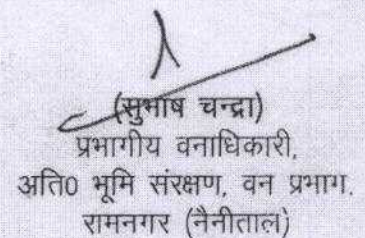 (सुभाष चन्द्रा)
प्रभागीय वनाधिकारी,
अति0 भूमि संरक्षण, वन प्रभाग,
रामनगर (नैनीताल)